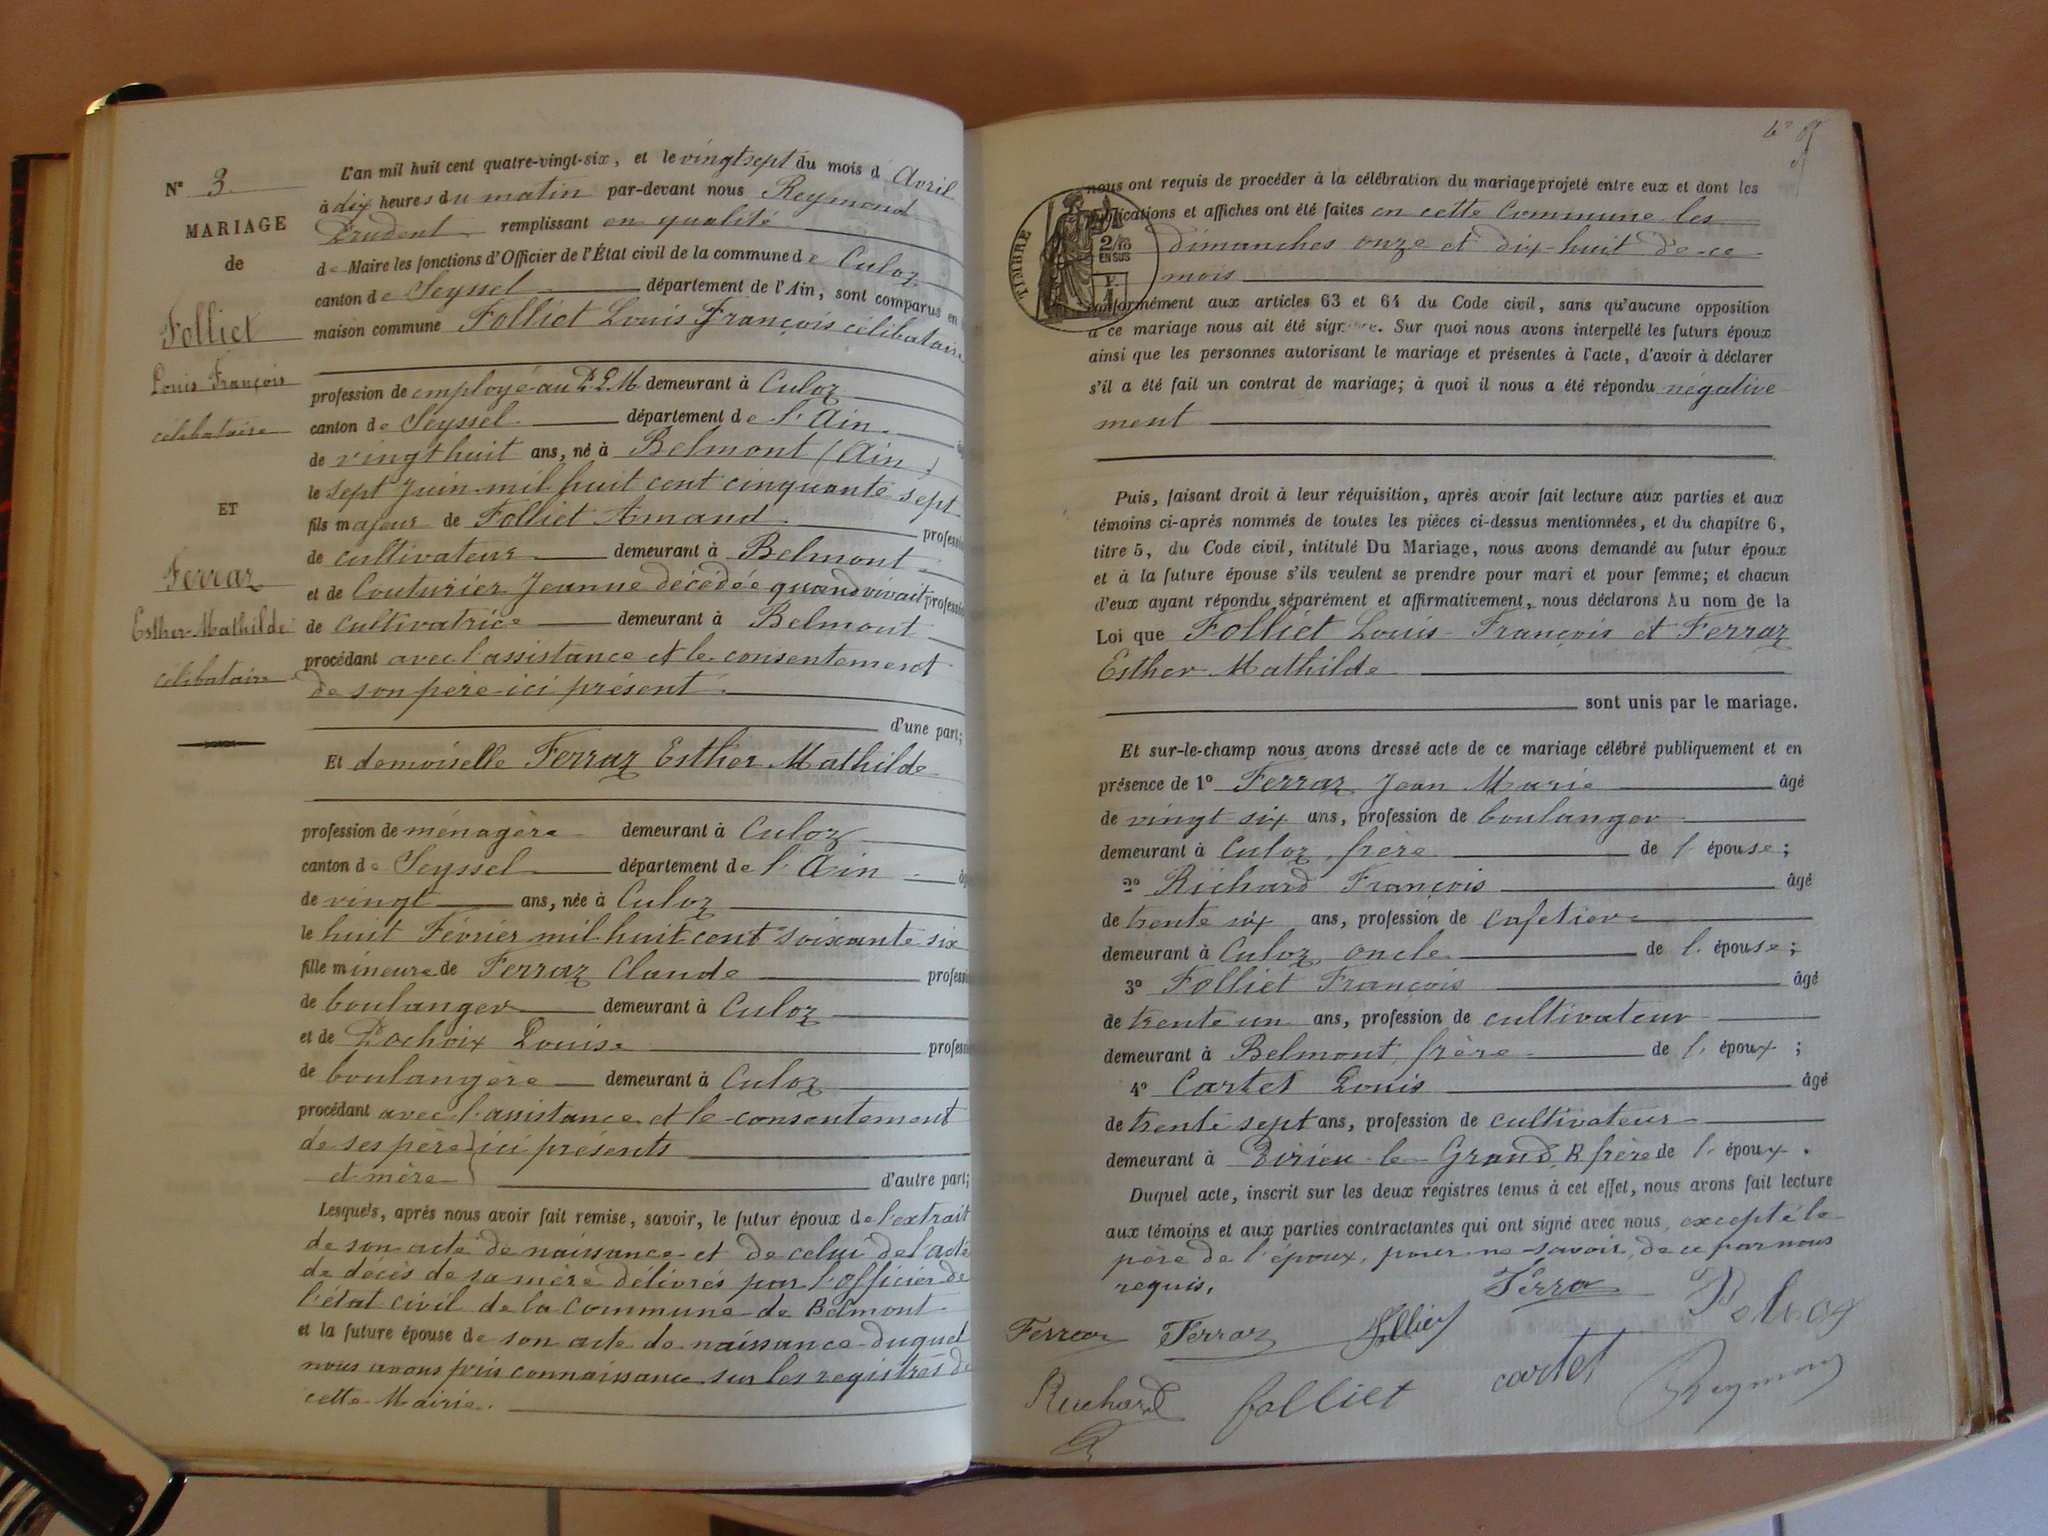 N° 3
MARIAGE
de
Folliet
Louis François
célibataire
ET
Ferraz
Esther Mathilde
célibataire
L'an mil huit cent quatre-vingt-six, et le vingt sept du mois d'Avril
à dix heures du matin par-devant nous Reymond
Prudent remplissant en qualité
de Maire les fonctions d'Officier de l'État civil de la commune de Culoz
canton de Seyssel département de l'Ain, sont comparus en
maison commune Folliet Louis François célibataire
profession de employé au P.L.M demeurant à Culoz
canton de Seyssel département de l'Ain
de vingt huit ans, né à Belmont (Ain)
le sept Juin mil huit cent cinquante sept
fils majeur de Folliet Amand professi
de cultivateur demeurant à Belmont
et de Couturier Jeanne décédée quand vivait professi
de cultivatrice demeurant à Belmont
procédant avec l'assistance et le consentement
de son père ici présent
d'une part;
Et demoiselle Ferraz Esther Mathilde
profession de ménagère demeurant à Culoz
canton de Seyssel département de l'Ain
de vingt ans, née à Culoz
le huit Février mil huit cent soixante six
fille mineure de Ferraz Claude professi
de boulanger demeurant à Culoz
et de Pochoix Louise profess
de boulangère demeurant à Culoz
procédant avec l'assistance et le consentement
de ses père ici présents
et mère d'autre part;
Lesquels, après nous avoir fait remise, savoir, le futur époux de l'extrait
de son acte de naissance et de celui de l'acte
de décès de sa mère délivrés par l'officier de
l'état civil de la Commune de Belmont
et la future épouse de son acte de naissance duquel
nous avons pris connaissance sur les registres de
cette Mairie.
nous ont requis de procéder à la célébration du mariage projeté entre eux et dont les
publications et affiches ont été faites en cette Commune les
dimanches onze et dix-huit de ce
mois
TIMBRE
2/10
EN SUS
conformément aux articles 63 et 64 du Code civil, sans qu'aucune opposition
à ce mariage nous ait été signifiée. Sur quoi nous avons interpellé les futurs époux
ainsi que les personnes autorisant le mariage et présentes à l'acte, d'avoir à déclarer
s'il a été fait un contrat de mariage; à quoi il nous a été répondu négative
ment
Puis, faisant droit à leur réquisition, après avoir fait lecture aux parties et aux
témoins ci-après nommés de toutes les pièces ci-dessus mentionnées, et du chapitre 6,
titre 5, du Code civil, intitulé Du Mariage, nous avons demandé au futur époux
et à la future épouse s'ils veulent se prendre pour mari et pour femme; et chacun
d'eux ayant répondu séparément et affirmativement, nous déclarons Au nom de la
Loi que Folliet Louis François et Ferraz
Esther Mathilde
sont unis par le mariage.
Et sur-le-champ nous avons dressé acte de ce mariage célébré publiquement et en
présence de 1° Ferraz Jean Marie âgé
de vingt six ans, profession de boulanger
demeurant à Culoz, frère de l'épouse;
2° Richard François âgé
de trente six ans, profession de cafetier
demeurant à Culoz oncle de l'épouse;
3° Folliet François âgé
de trente un ans, profession de cultivateur
demeurant à Belmont, frère de l'époux;
4° Cartet Louis âgé
de trente sept ans, profession de cultivateur
demeurant à Virieu le Grand, B frère de l'époux.
Duquel acte, inscrit sur les deux registres tenus à cet effet, nous avons fait lecture
aux témoins et aux parties contractantes qui ont signé avec nous, excepté le
père de l'époux, pour ne savoir, de ce par nous
requis.
Ferra
Ferraz Ferraz Folliet
Richard folliet cartet Reymond